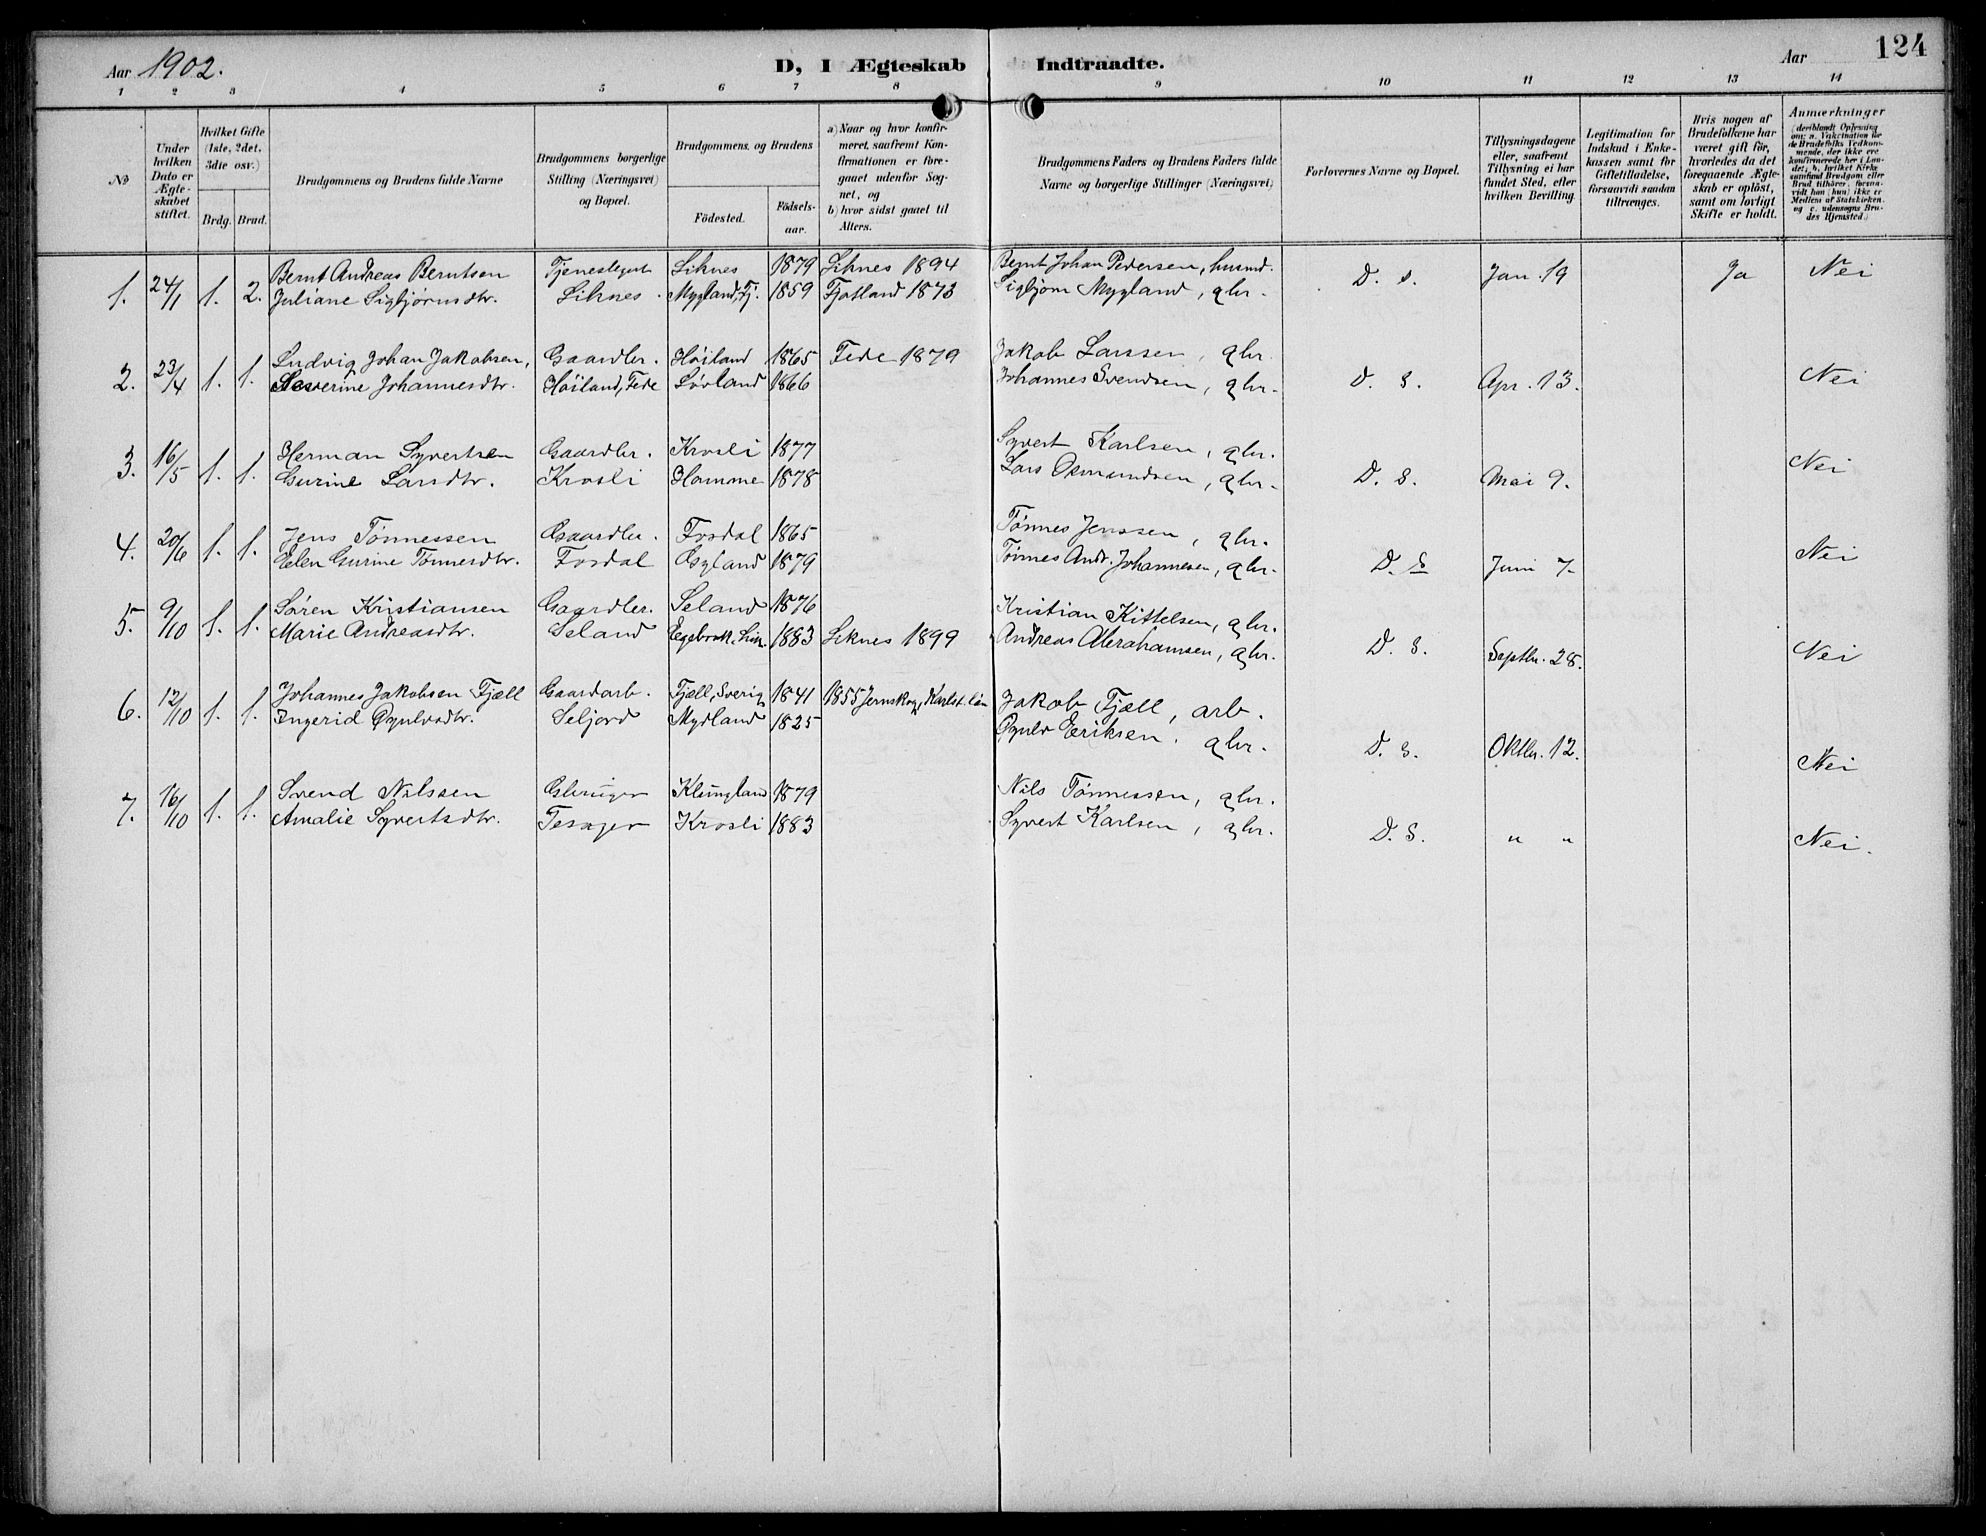 Aar 1902. D, I Ægteskab Indtraadte. Aar 124
1 2 3 4 5 6 7 8 9 10 11 12 13 14
No
Under hvilken Dato er Ægteskabet stiftet.
Hvilket Gifte (1ste, 2det, 3die osv.)
Brdg. Brud.
Brudgommens og Brudens fulde Navne
Brudgommens borgerlige Stilling (Næringsvei) og Bopæl.
Brudgommens og Brudens
Födested. Födselsaar.
a) Naar og hvor konfirmeret, saafremt Konfirmationen er foregaaet udenfor Sognet, og
b) hvor sidst gaaet til Alters.
Brudgommens Faders og Brudens Faders fulde Navne og borgerlige Stillinger (Næringsvei)
Forlovernes Navne og Bopæl.
Tillysningsdagene eller, saafremt Tillysning ei har fundet Sted, efter hvilken Bevilling.
Legitimation for Indskud i Enkekassen samt for Giftetilladelse, forsaavidt saadan tiltrænges.
Hvis nogen af Brudefolkene har været gift för, hvorledes da det foregaaende Ægteskab er oplöst, samt om lovligt Skifte er holdt.
Anmerkninger (deriblandt Oplysning om: a. Vakcination for de Brudefolks Vedkommende, der ikke ere konfirmerede her i Landet; b. hvilket Kirkesamfund Brudgom eller Brud tilhörer, forsaavidt han (hun) ikke er Medlem af Statskirken, og c. udensogns Brudes Hjemsted.)
1. 24/1 1. 2. Bernt Andreas Berntsen Tjenestegut Liknes 1879 Liknes 1894 Bernt Johan Pedersen, husmd. D. S. Jan. 19 Ja Nei
Juliane Sigbjørnsdtr. Liknes. Mygland, Fj. 1859 Fjotland 1873 Sigbjørn Mygland, gbr.
2. 23/4 1. 1. Ludvig Johan Jakobsen, Gaardbr. Høiland 1865 Fede 1879 Jakob Larssen, gbr. D. S. Apr. 13. Nei
Severine Johannesdtr. Høiland, Fede Løvland 1866 Johannes Svendsen, gbr.
3. 16/5 1. 1. Herman Syvertsen Gaardbr. Krosli 1877 Syvert Karlsen, gbr. D. S. Mai 9. Nei
Gurine Larsdtr. Krosli Homme 1878 Lars Osmundsen, gbr.
4. 20/6 1. 1. Jens Tønnessen Gaardbr. Fosdal 1865 Tønnes Jenssen, gbr. D. S Juni 7. Nei
Elen Gurine Tønnesdtr. Fosdal Osyland 1879 Tønnes Andr. Johannesen, gbr.
5. 9/10 1. 1. Søren Kristiansen Gaardbr. Seland 1876 Kristian Kittelsen, gbr. D. S. Septbr. 28. Nei
Marie Andreasdtr. Seland Egebrok, Lik. 1883 Liknes 1899 Andreas Abrahamsen, gbr.
6. 12/10 1. 1. Johannes Jakobsen Fjæll Gaardarb. Fjæll, Sverig 1841 1855 Jernskog, Karlst. län Jakob Fjæll, arb. D. S. Oktbr. 12. Nei
Ingerid Øyulvsdtr. Seljord Mydland 1825 Øyulv Eriksen. gbr.
7. 16/10 1. 1. Svend Nilssen Gbruger Klungland 1879 Nils Tønnessen, gbr. D. S. " " Nei.
Amalie Syvertsdtr. Tesager Krosli 1883 Syvert Karlsen, gbr.